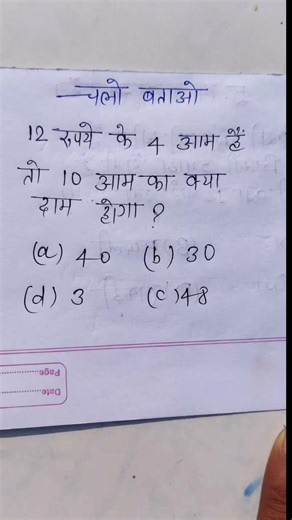 चलो बताओ
12 रुपये के 4 आम हैं
तो 10 आम का क्या
दाम होगा ?
(a) 40 (b) 30
(d) 3 (c) 48
Page:
Date: